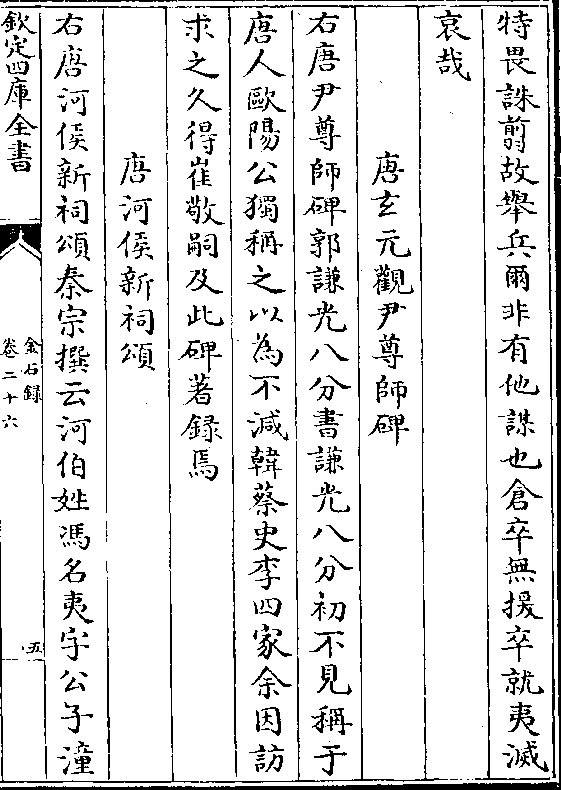 特畏誅翦故舉兵爾非有他謀也倉卒無援卒就夷滅
哀哉
唐玄元觀尹尊師碑
右唐尹尊師碑郭謙光八分書謙光八分初不見稱于
唐人歐陽公獨稱之以為不減韓蔡史李四家余因訪
求之久得崔敬嗣及此碑著錄焉
唐河侯新祠頌
右唐河侯新祠頌秦宗撰云河伯姓馮名夷字公子潼
欽定四庫全書
金石錄
卷二十六
五